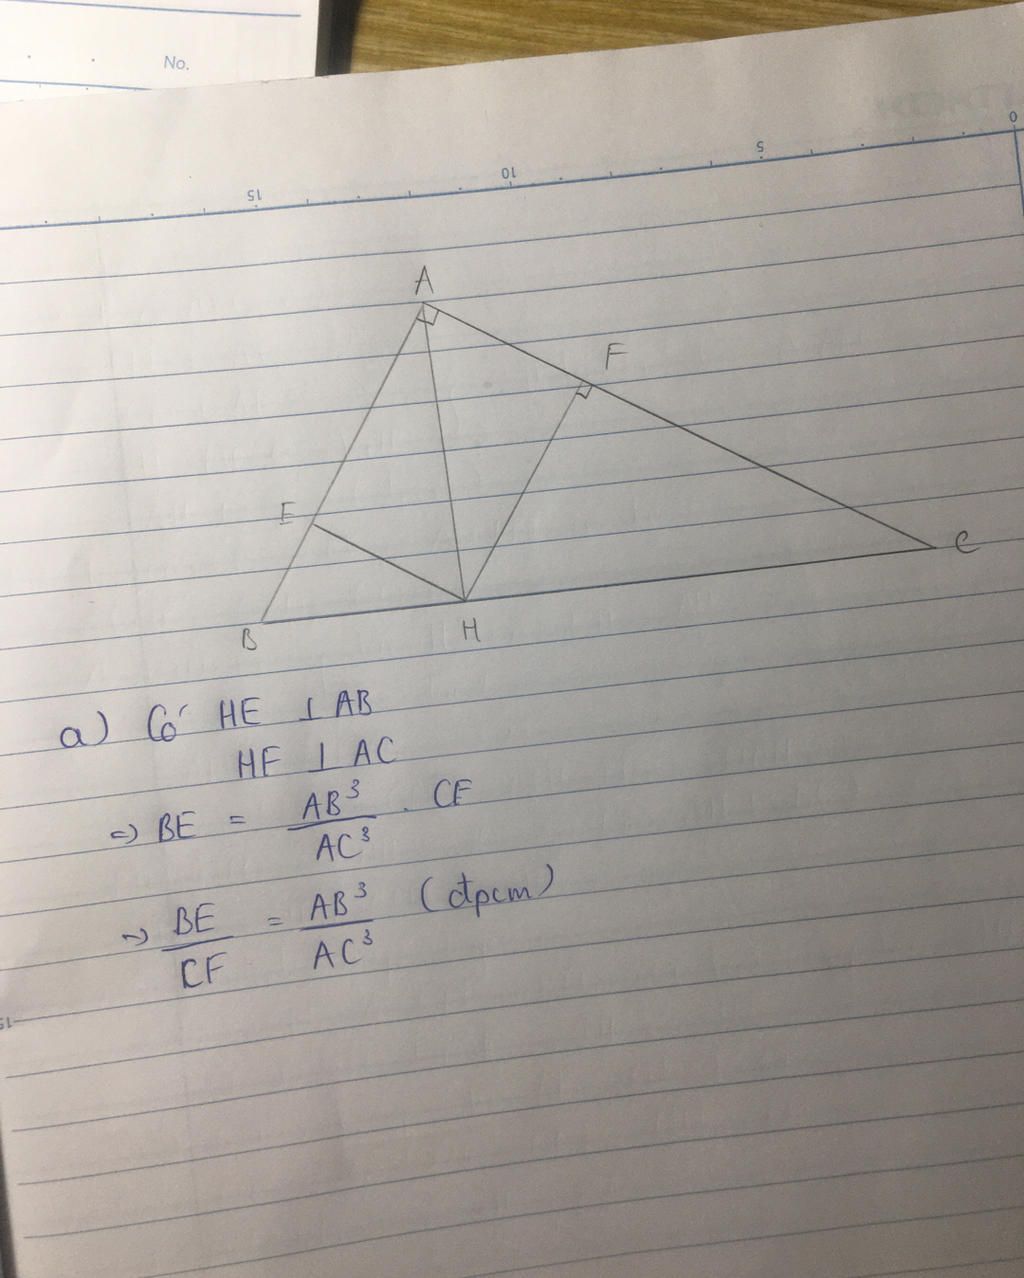 No.
0
5
10
15
A
F
E
C
B
H
a) Có HE ⊥ AB
HF ⊥ AC
=> BE = AB³/AC³ . CF
=> BE/CF = AB³/AC³ (đpcm)
15